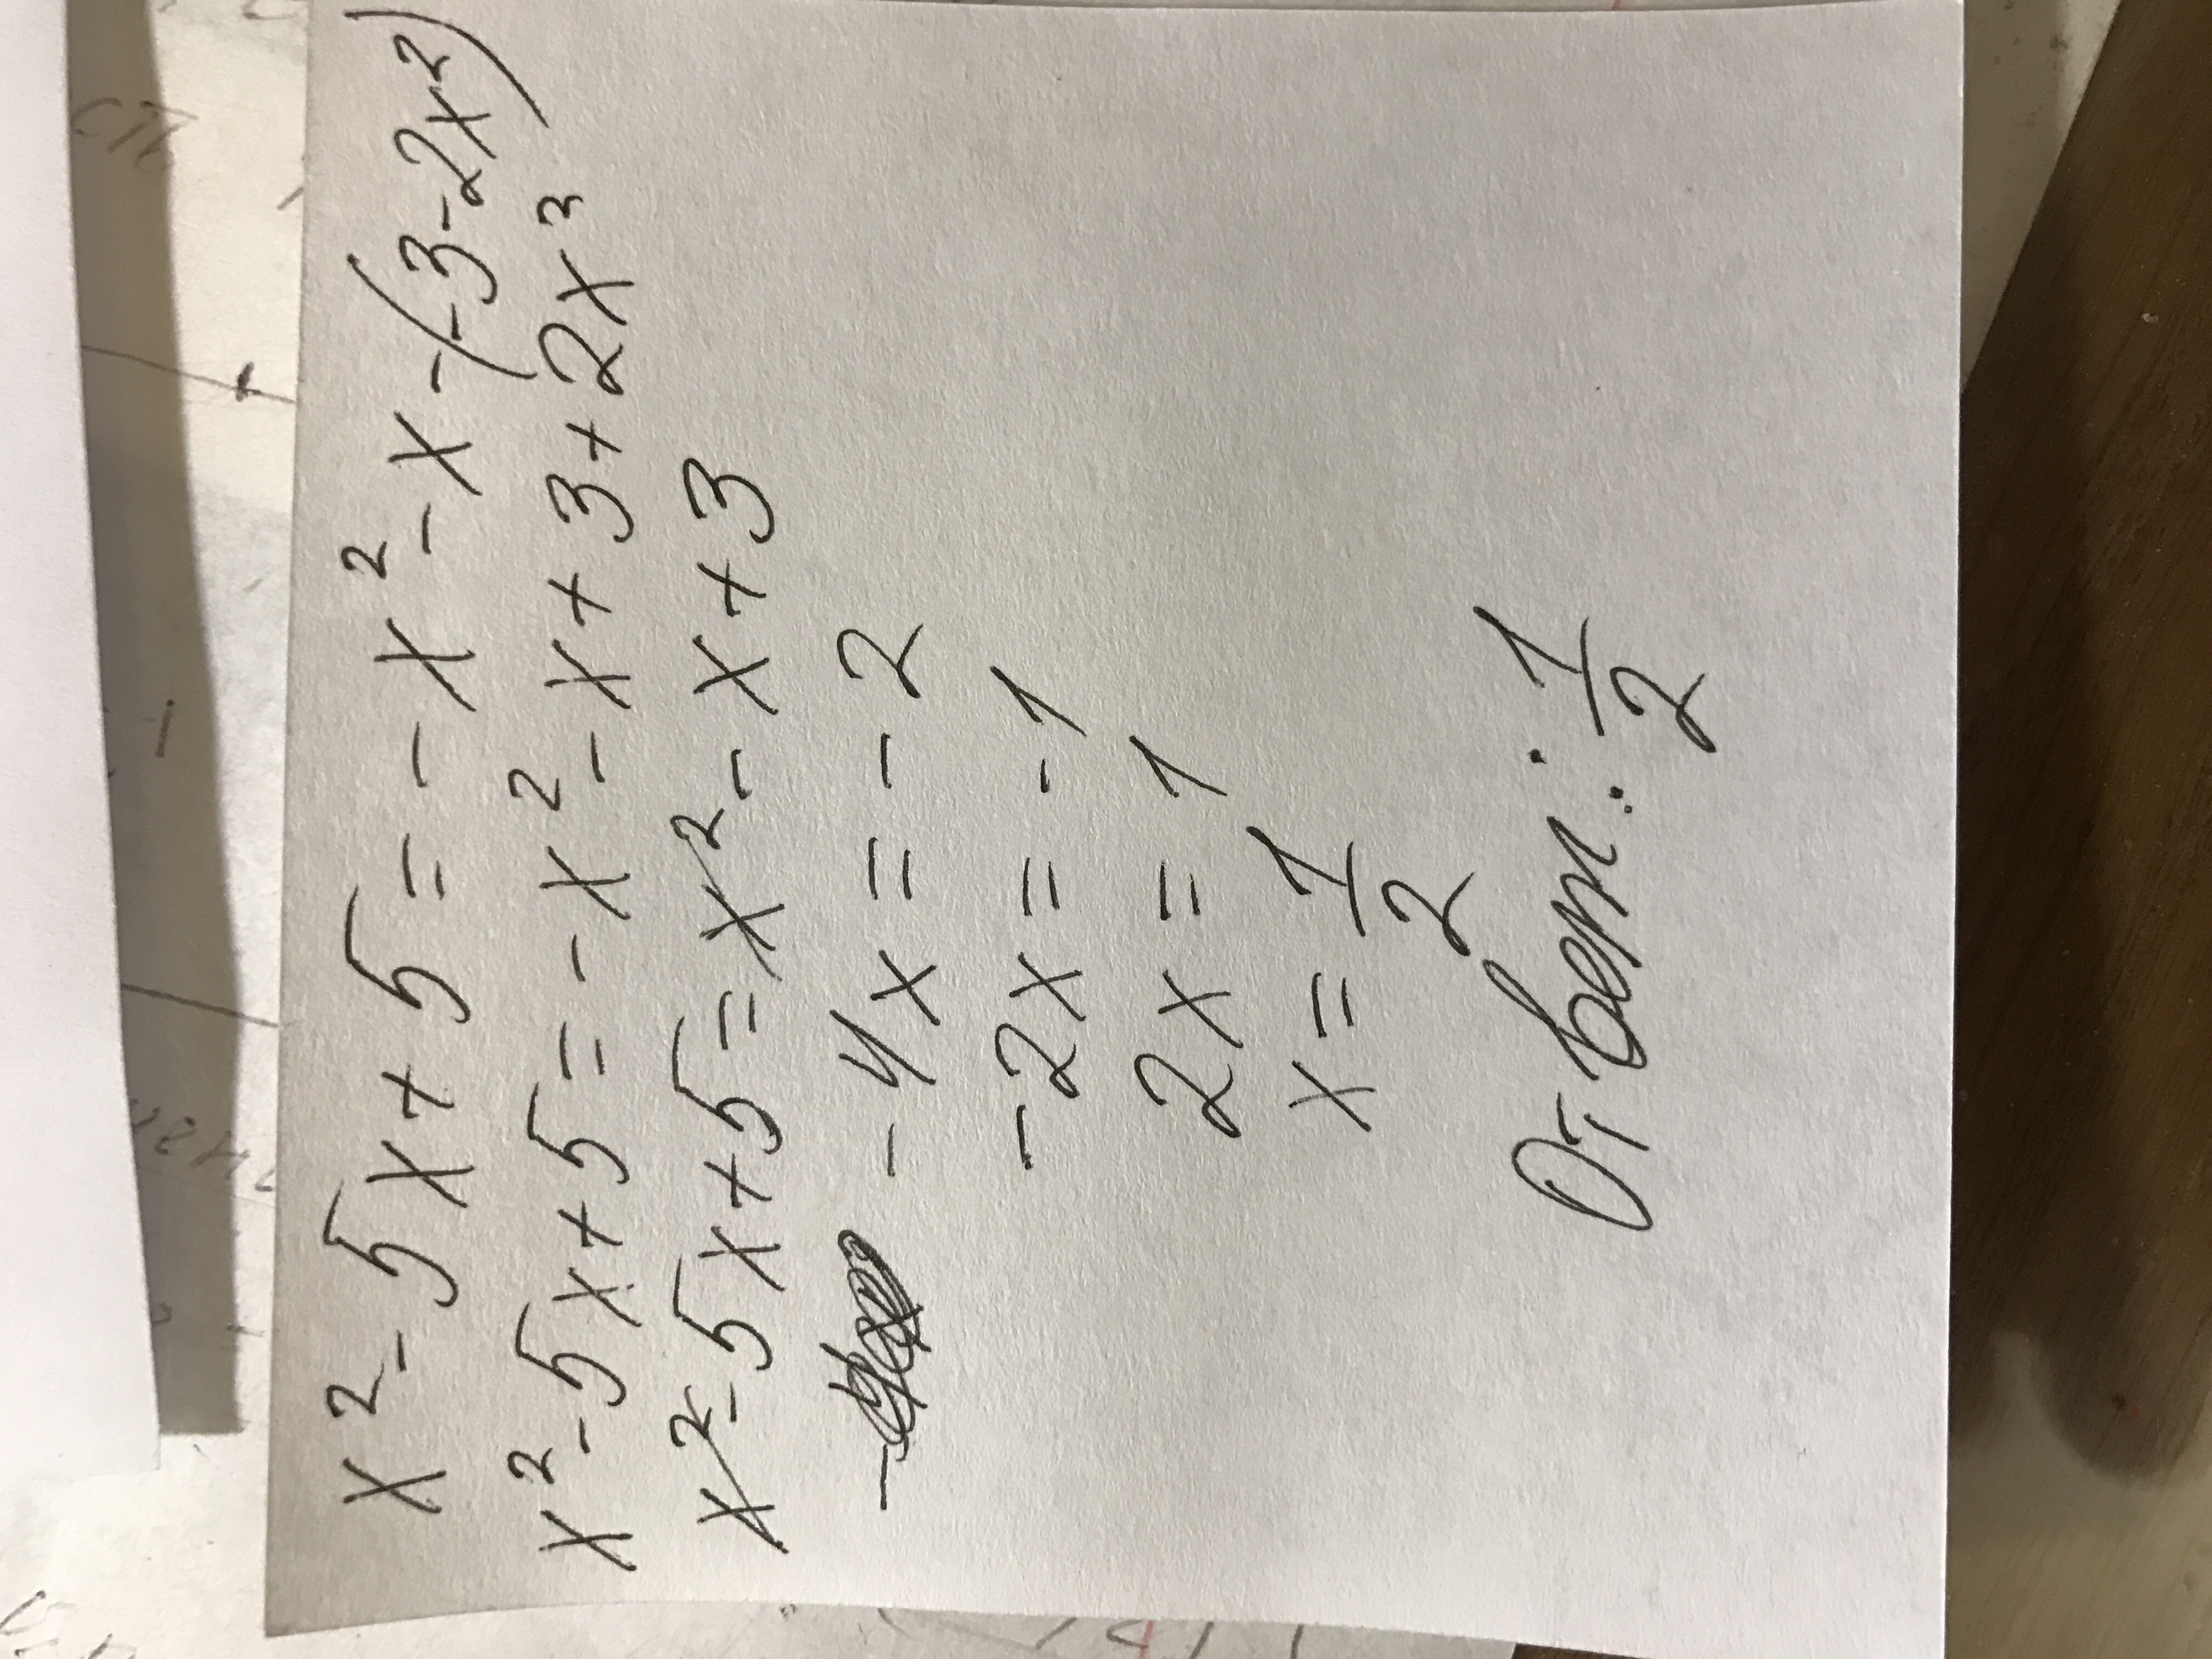 x² - 5x + 5 = - x² - x - (-3 - 2x²)
x² - 5x + 5 = - x² - x + 3 + 2x³
x² - 5x + 5 = x² - x + 3
- 4x = - 2
- 2x = - 1
2x = 1
x = 1/2
Ответ: 1/2